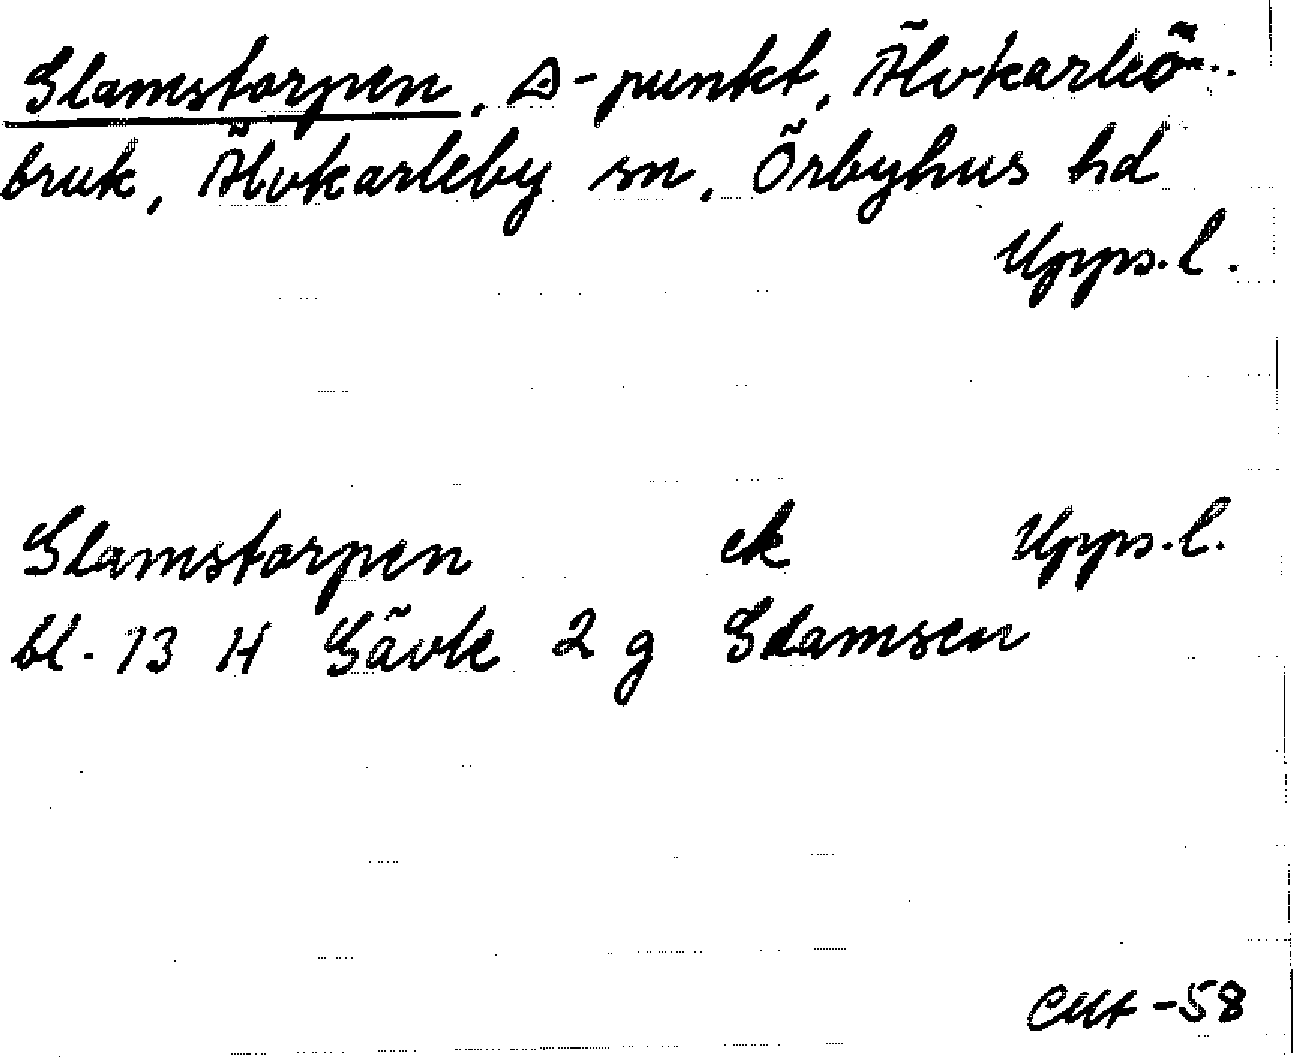 Glamstorpen, △-punkt, Älvkarleö-
bruk, Älvkarleby sn, Örbyhus hd
Upps.l.
Glamstorpen ek Upps.l.
bl. 13 H Gävle 2 g Glamsen
-58